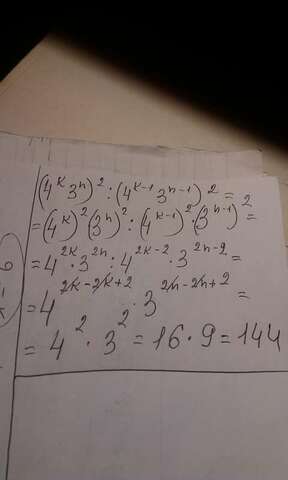 (4^k 3^n)^2 : (4^{k-1} 3^{n-1})^2 =
= (4^k)^2 (3^n)^2 : (4^{k-1})^2 · (3^{n-1})^2 =
= 4^{2k} · 3^{2n} : 4^{2k-2} · 3^{2n-2} =
= 4^{2k-2k+2} · 3^{2n-2n+2} =
= 4^2 · 3^2 = 16 · 9 = 144